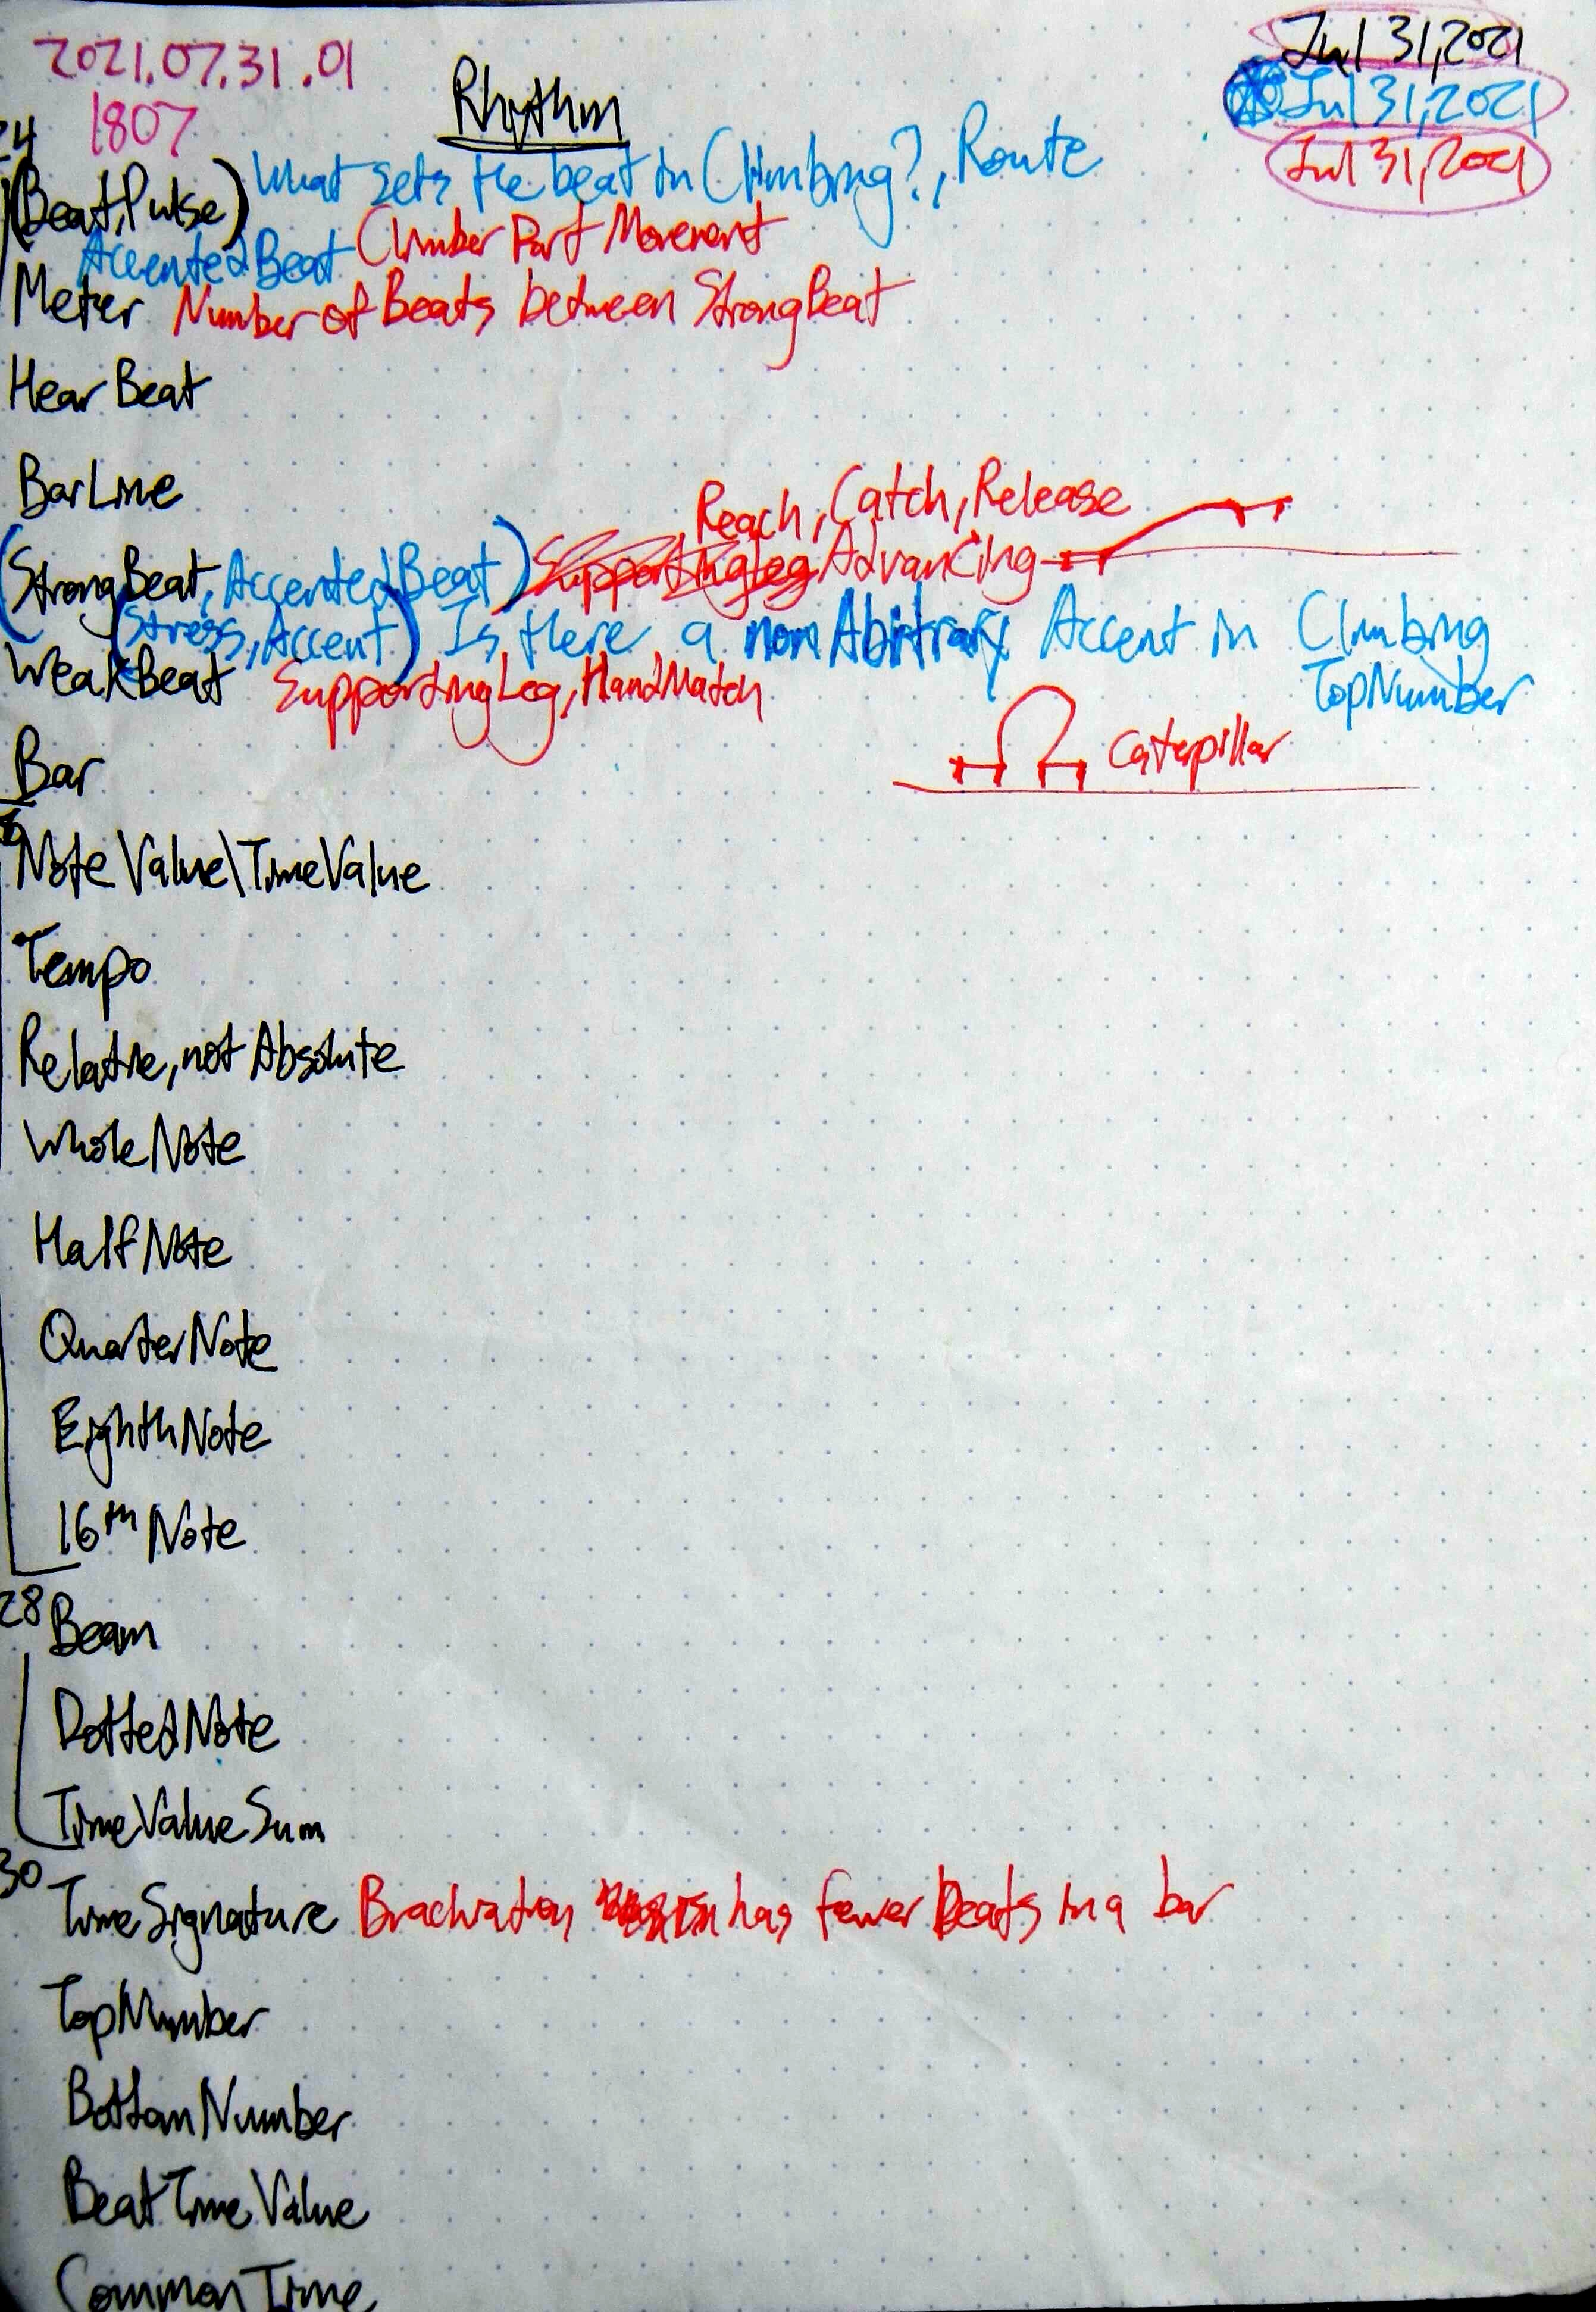 2021.07.31.01
Jul 31,2021
1807
Rhythm
Jul 31,2021
Jul 31,2021
(Beat,Pulse) What sets the beat in Climbing?, Route
AccentedBeat Climber Part Movement
Meter Number of Beats between StrongBeat
Hear Beat
BarLine
Reach, Catch, Release
(StrongBeat, AccentedBeat) SupportingLeg Advancing
(Stress,Accent) Is there a non Abitrary Accent in Climbing
WeakBeat SupportingLeg, HandMatch
TopNumber
Bar
Caterpillar
Note Value\TimeValue
Tempo
Relative, not Absolute
Whole Note
Half Note
QuarterNote
EighthNote
16th Note
28 Beam
DottedNote
TimeValueSum
30
TimeSignature Brachiation has fewer Beats in a bar
TopNumber
BottomNumber
BeatTimeValue
CommonTime